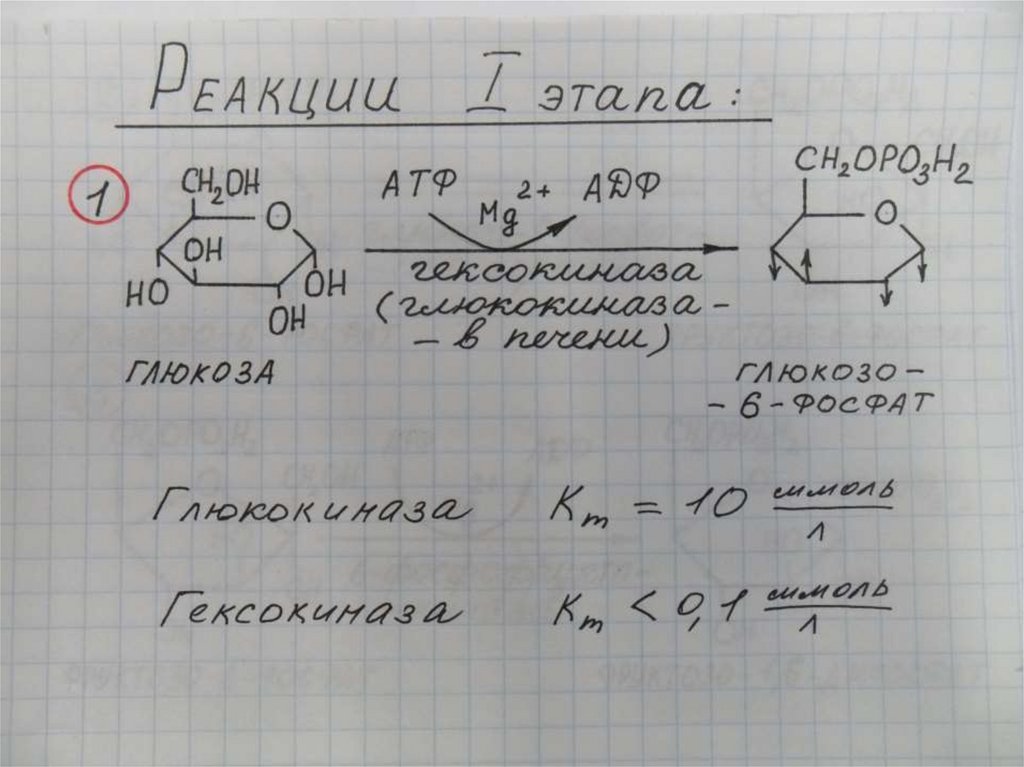 Реакции I этапа:
1
CH₂OH
O
OH
HO
OH
OH
ГЛЮКОЗА
АТФ Mg²⁺ АДФ
гексокиназа
(глюкокиназа -
- в печени)
CH₂OPO₃H₂
O
ГЛЮКОЗО-
-6-ФОСФАТ
Глюкокиназа Km = 10 ммоль/л
Гексокиназа Km < 0,1 ммоль/л